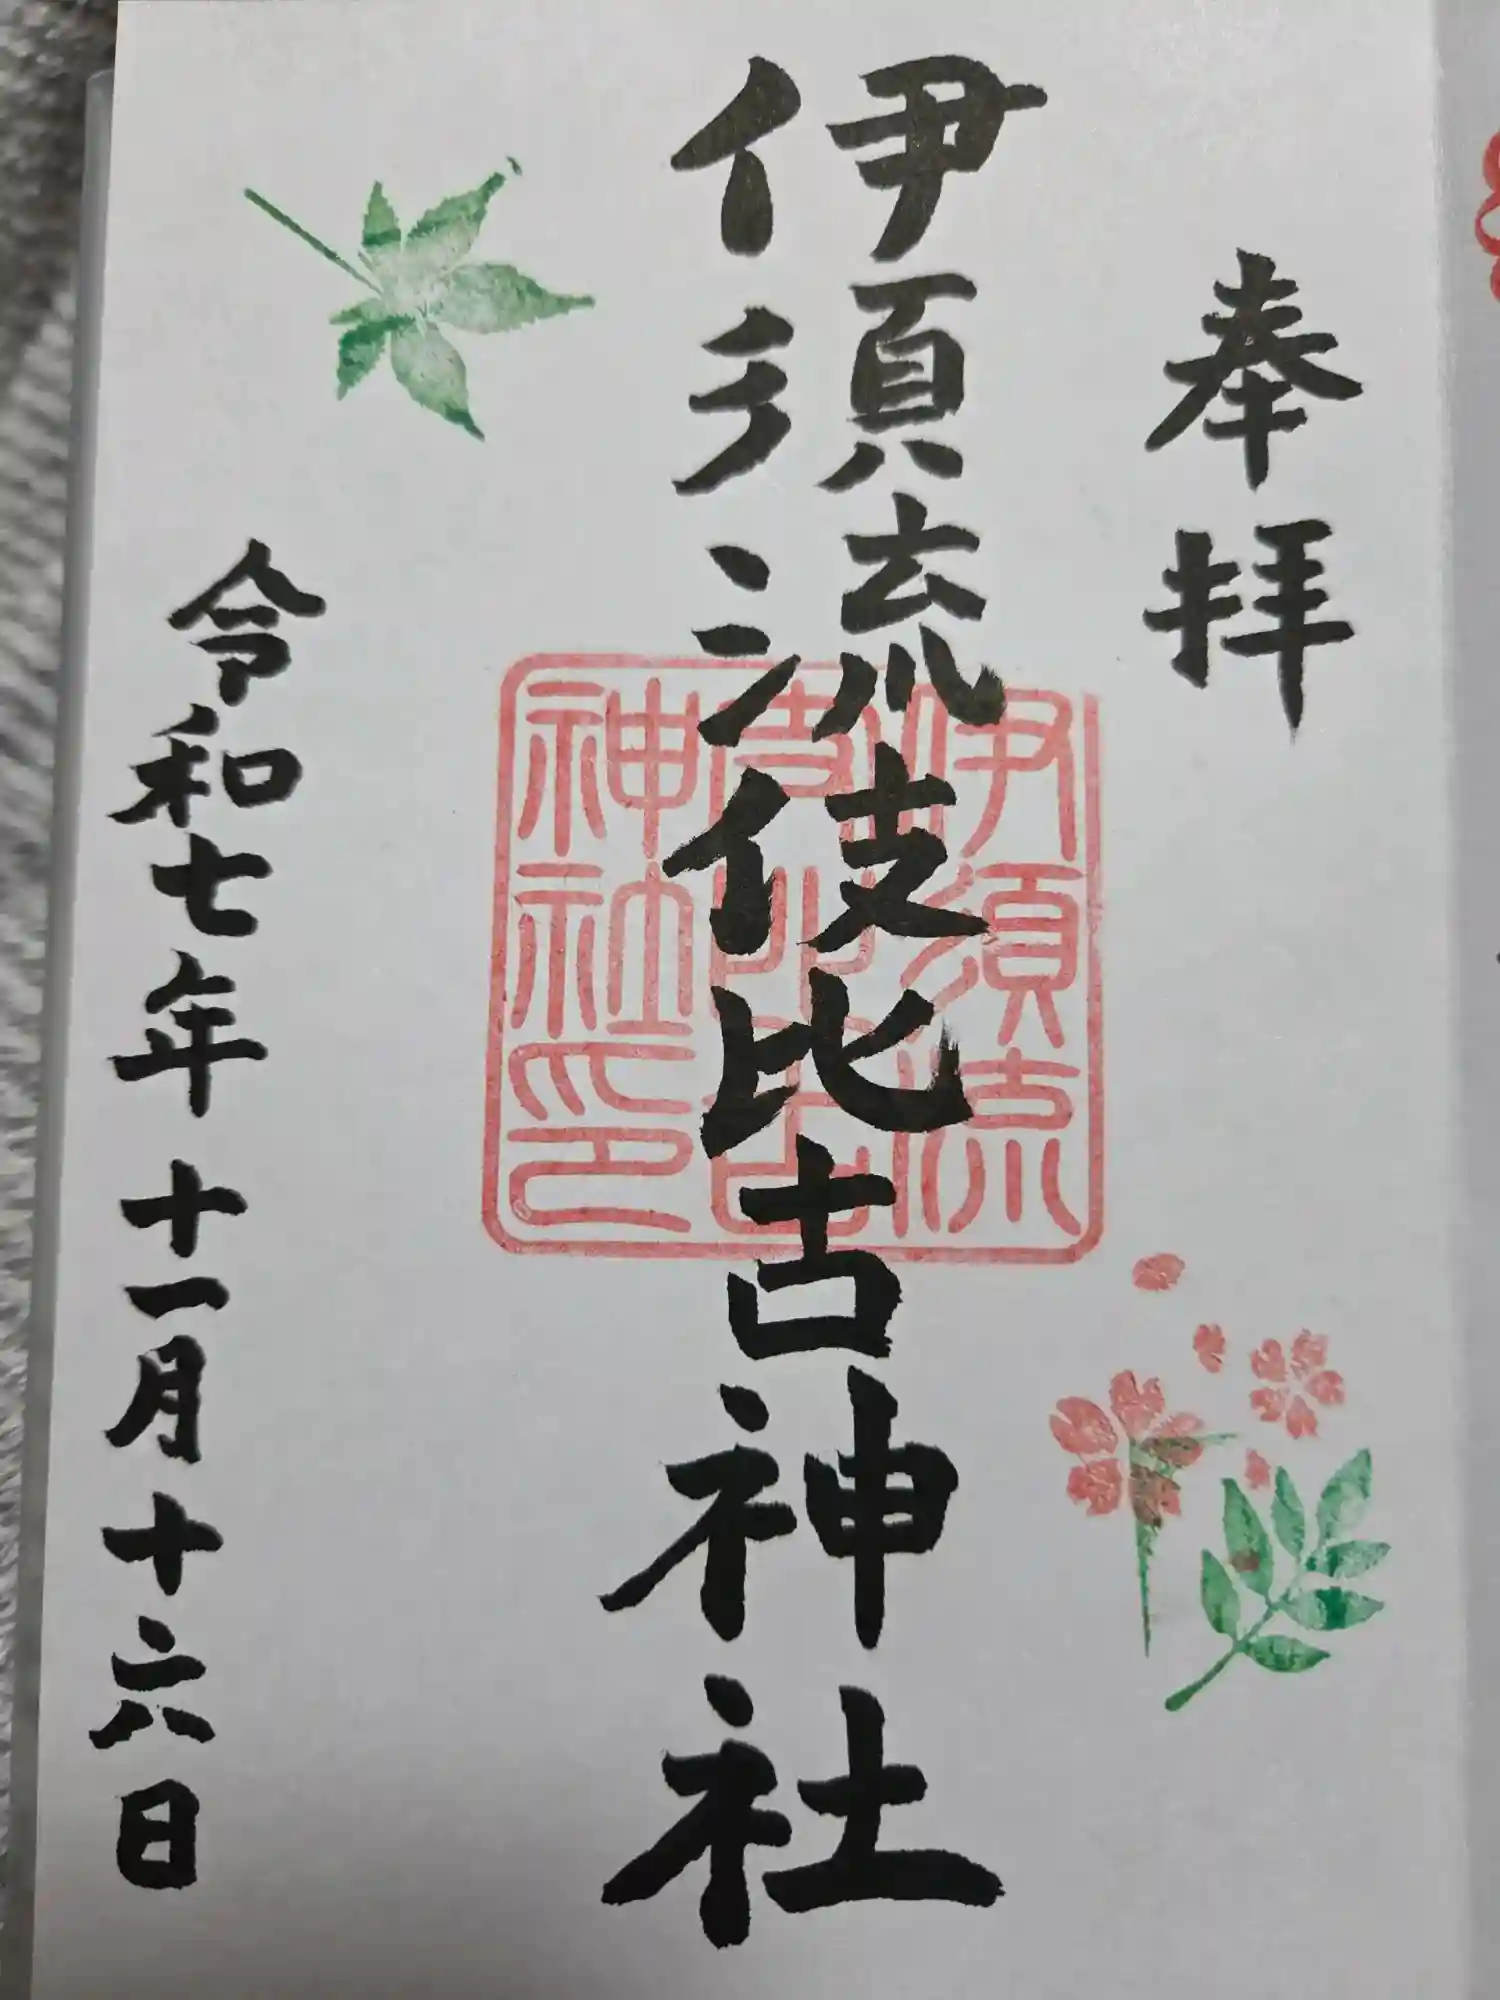 奉拝
伊須流伎比古神社
伊須流
伎比古
神社印
令和七年十一月十六日